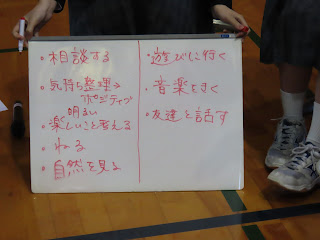 ・相談する
・気持ち整理→
ポジティブ
明るい
・楽しいこと考える
・ねる
・自然を見る
・遊びに行く
・音楽をきく
・友達と話す